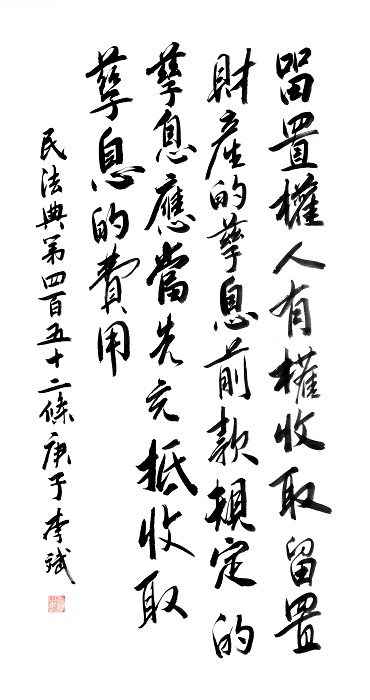 留置權人有權收取留置
財產的孳息前款規定的
孳息應當先充抵收取
孳息的費用
民法典第四百五十二條庚子李斌